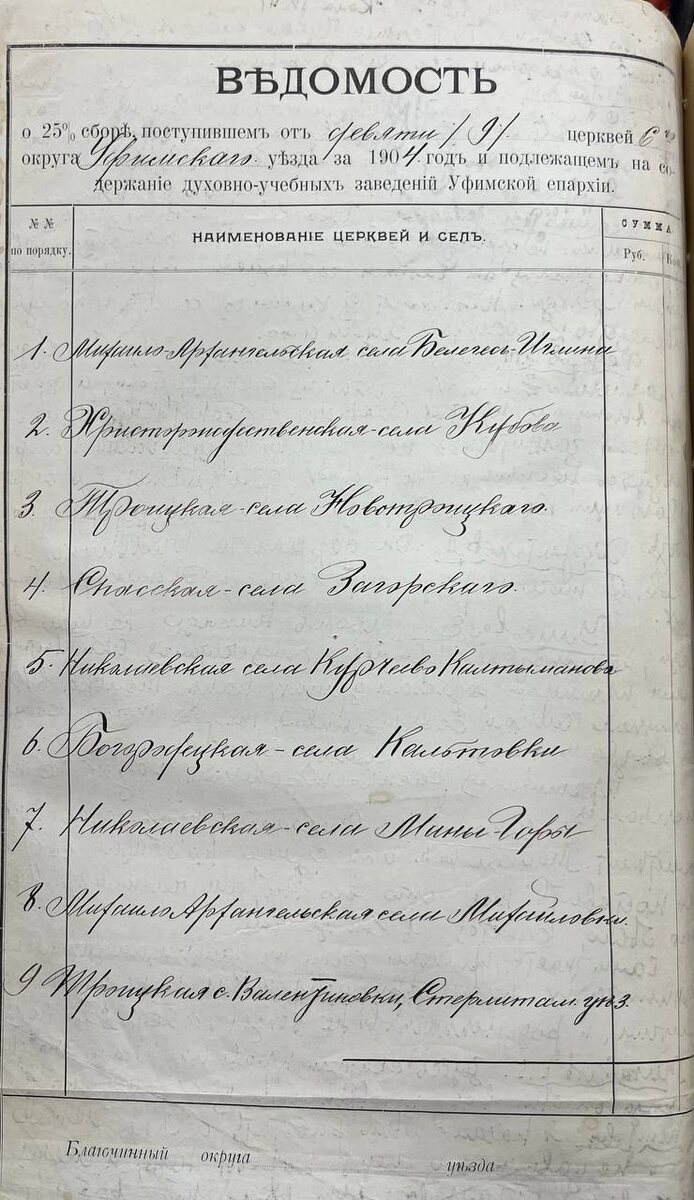 ВѢДОМОСТЬ
о 25% сборѣ, поступившемъ отъ девяти /9/ церквей 6го
округа Уфимскаго уѣзда за 1904 годъ и подлежащемъ на со-
держаніе духовно-учебныхъ заведеній Уфимской епархіи.
№ № по порядку. НАИМЕНОВАНІЕ ЦЕРКВЕЙ И СЕЛЪ. СУММА
Руб. Коп.
1. Михаило-Архангельская села Белекесъ-Иглина
2. Христорождественская-села Кубова
3. Троицкая-села Новотроицкаго.
4. Спасская-села Загорскаго.
5. Николаевская села Курчеево Калтыманова
6. Богородецкая-села Кальтовки
7. Николаевская-села Мины-Горы
8. Михаило Архангельская села Михайловки.
9 Троицкая с. Валентиновки, Стерлитам. уѣз.
Благочинный округа уѣзда